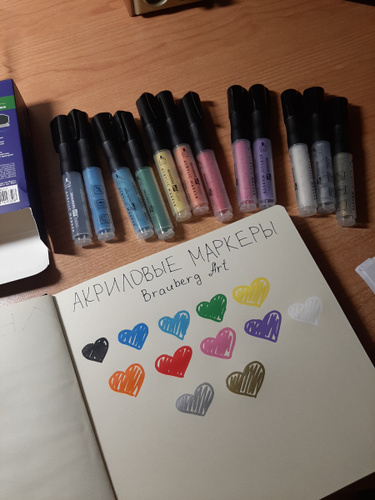 АКРИЛОВЫЕ МАРКЕРЫ
Brauberg Art